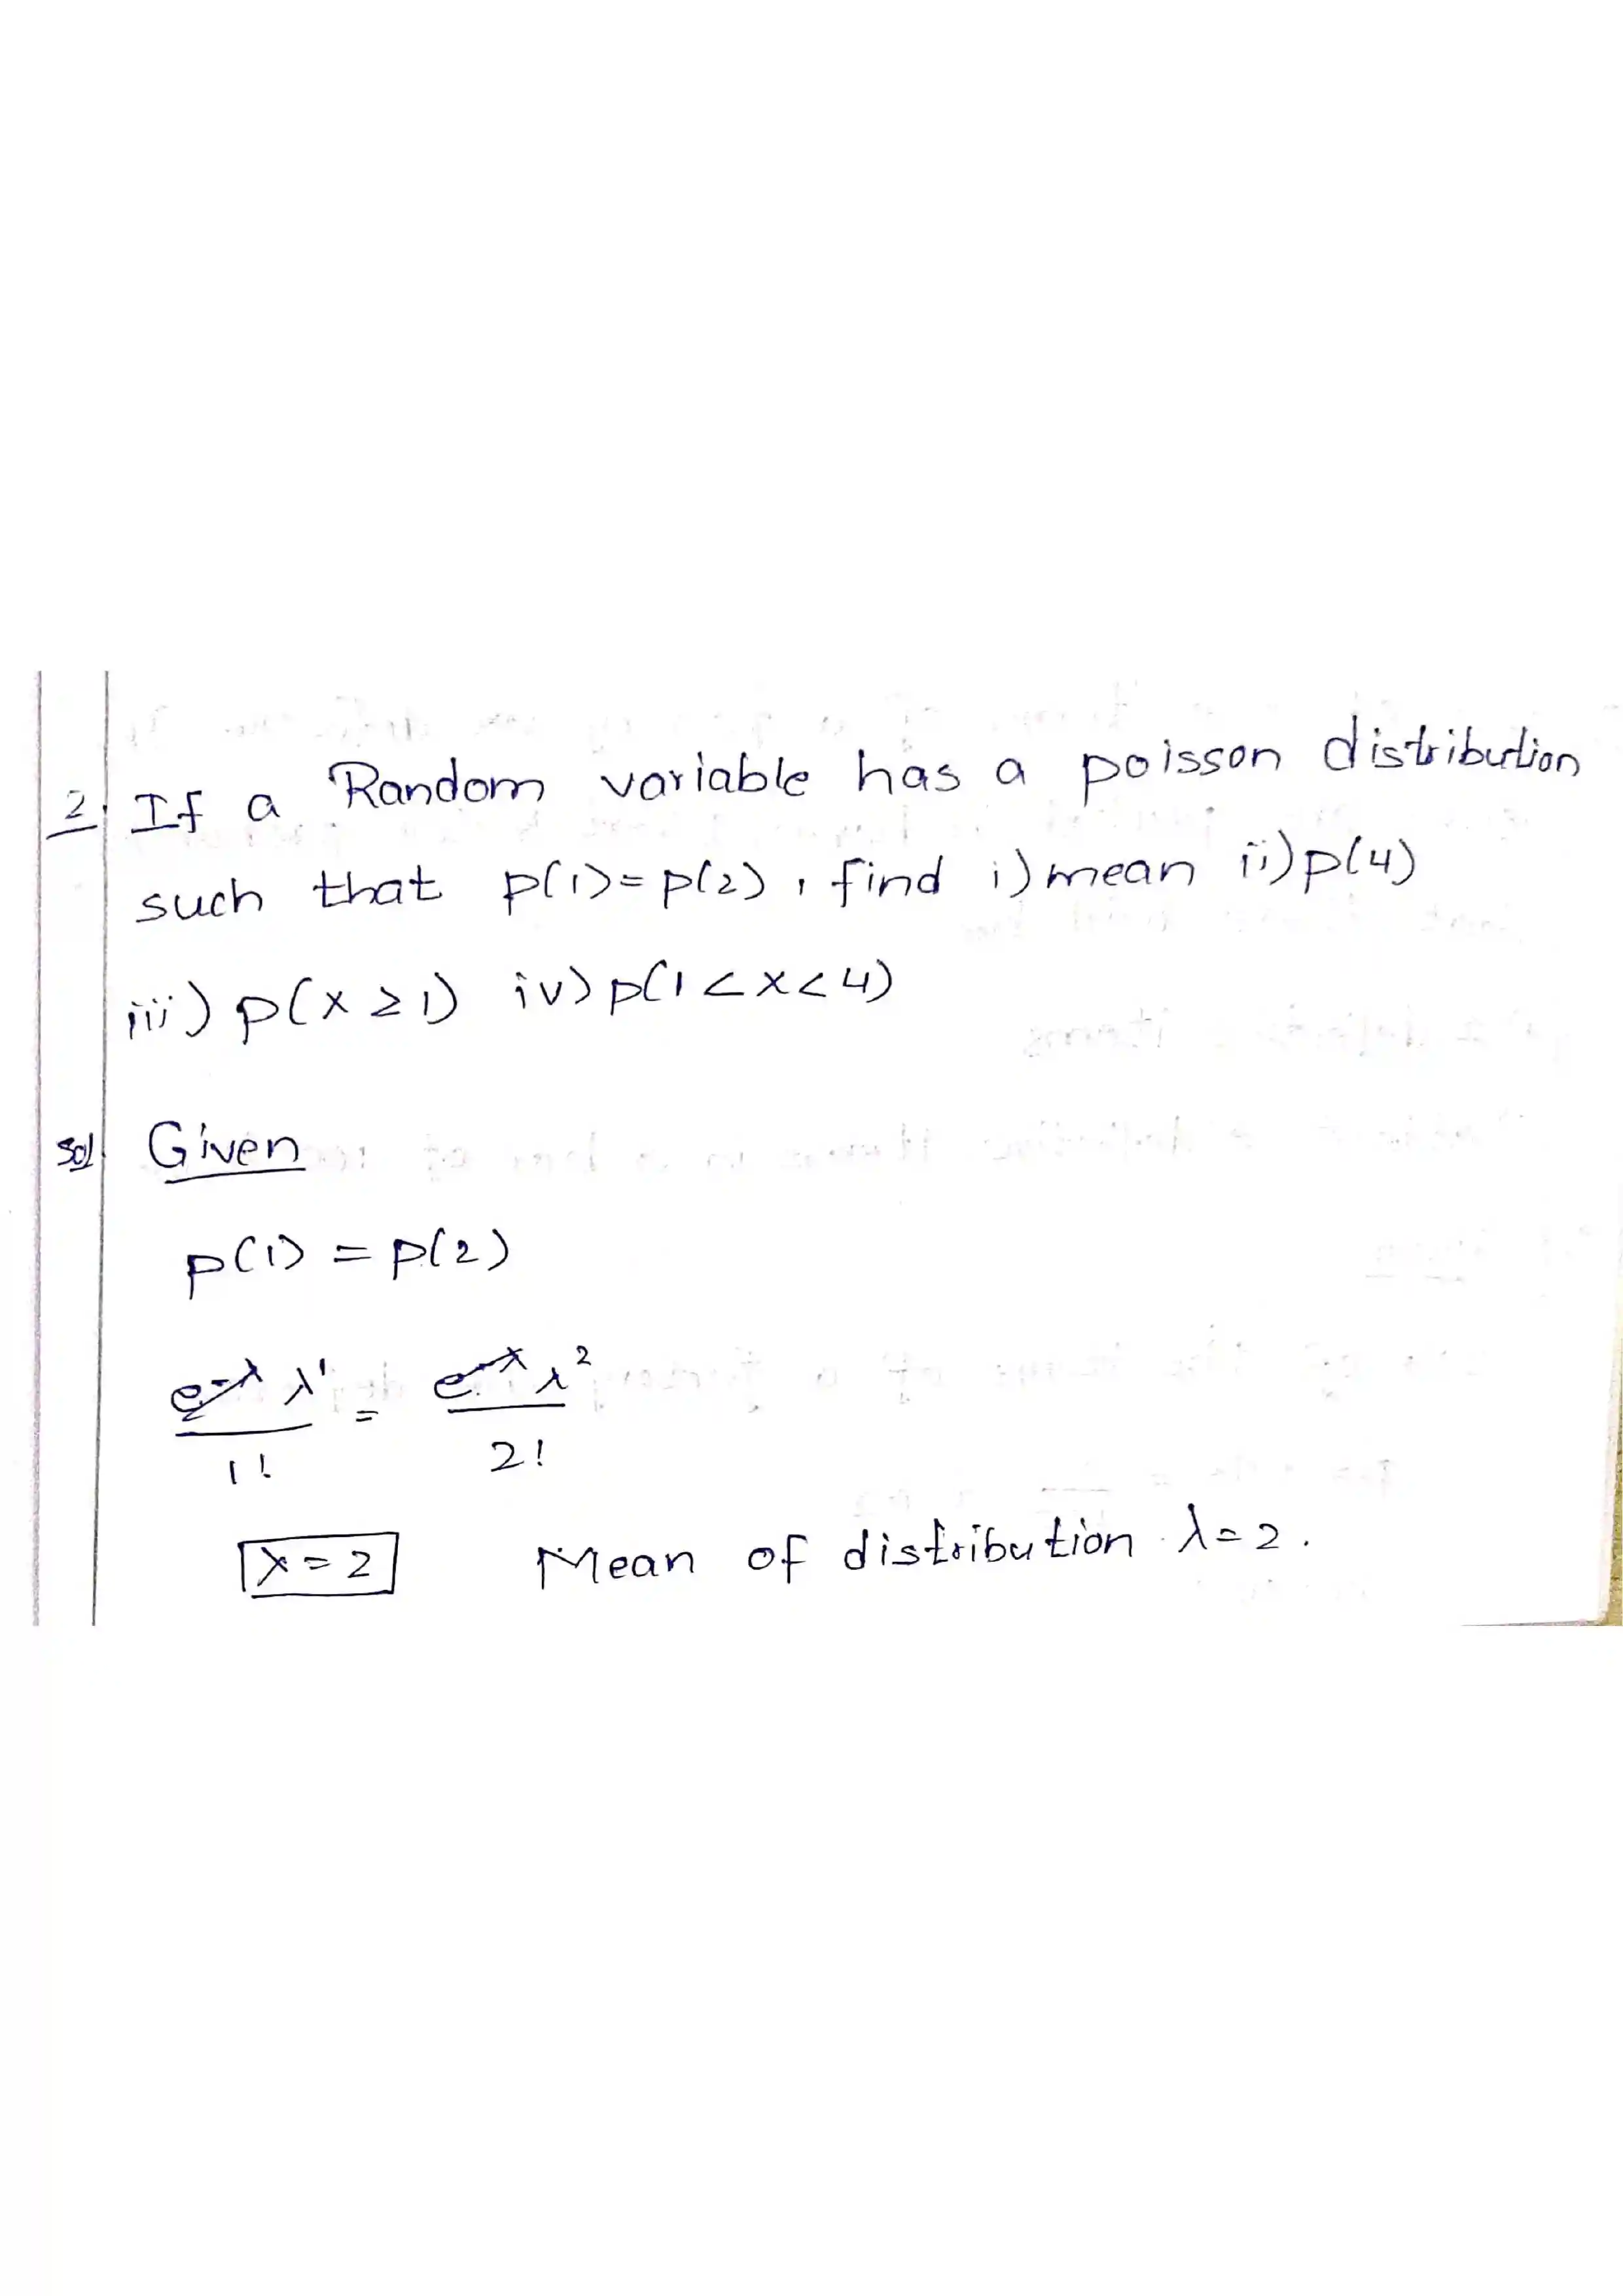 2. If a Random variable has a poisson distribution
such that p(1)=p(2), find i) mean ii) p(4)
iii) p(x≥1) iv) p(1<x<4)
Sol Given
p(1) = p(2)
e^-λ λ^1 / 1! = e^-λ λ^2 / 2!
λ=2 Mean of distribution λ=2.